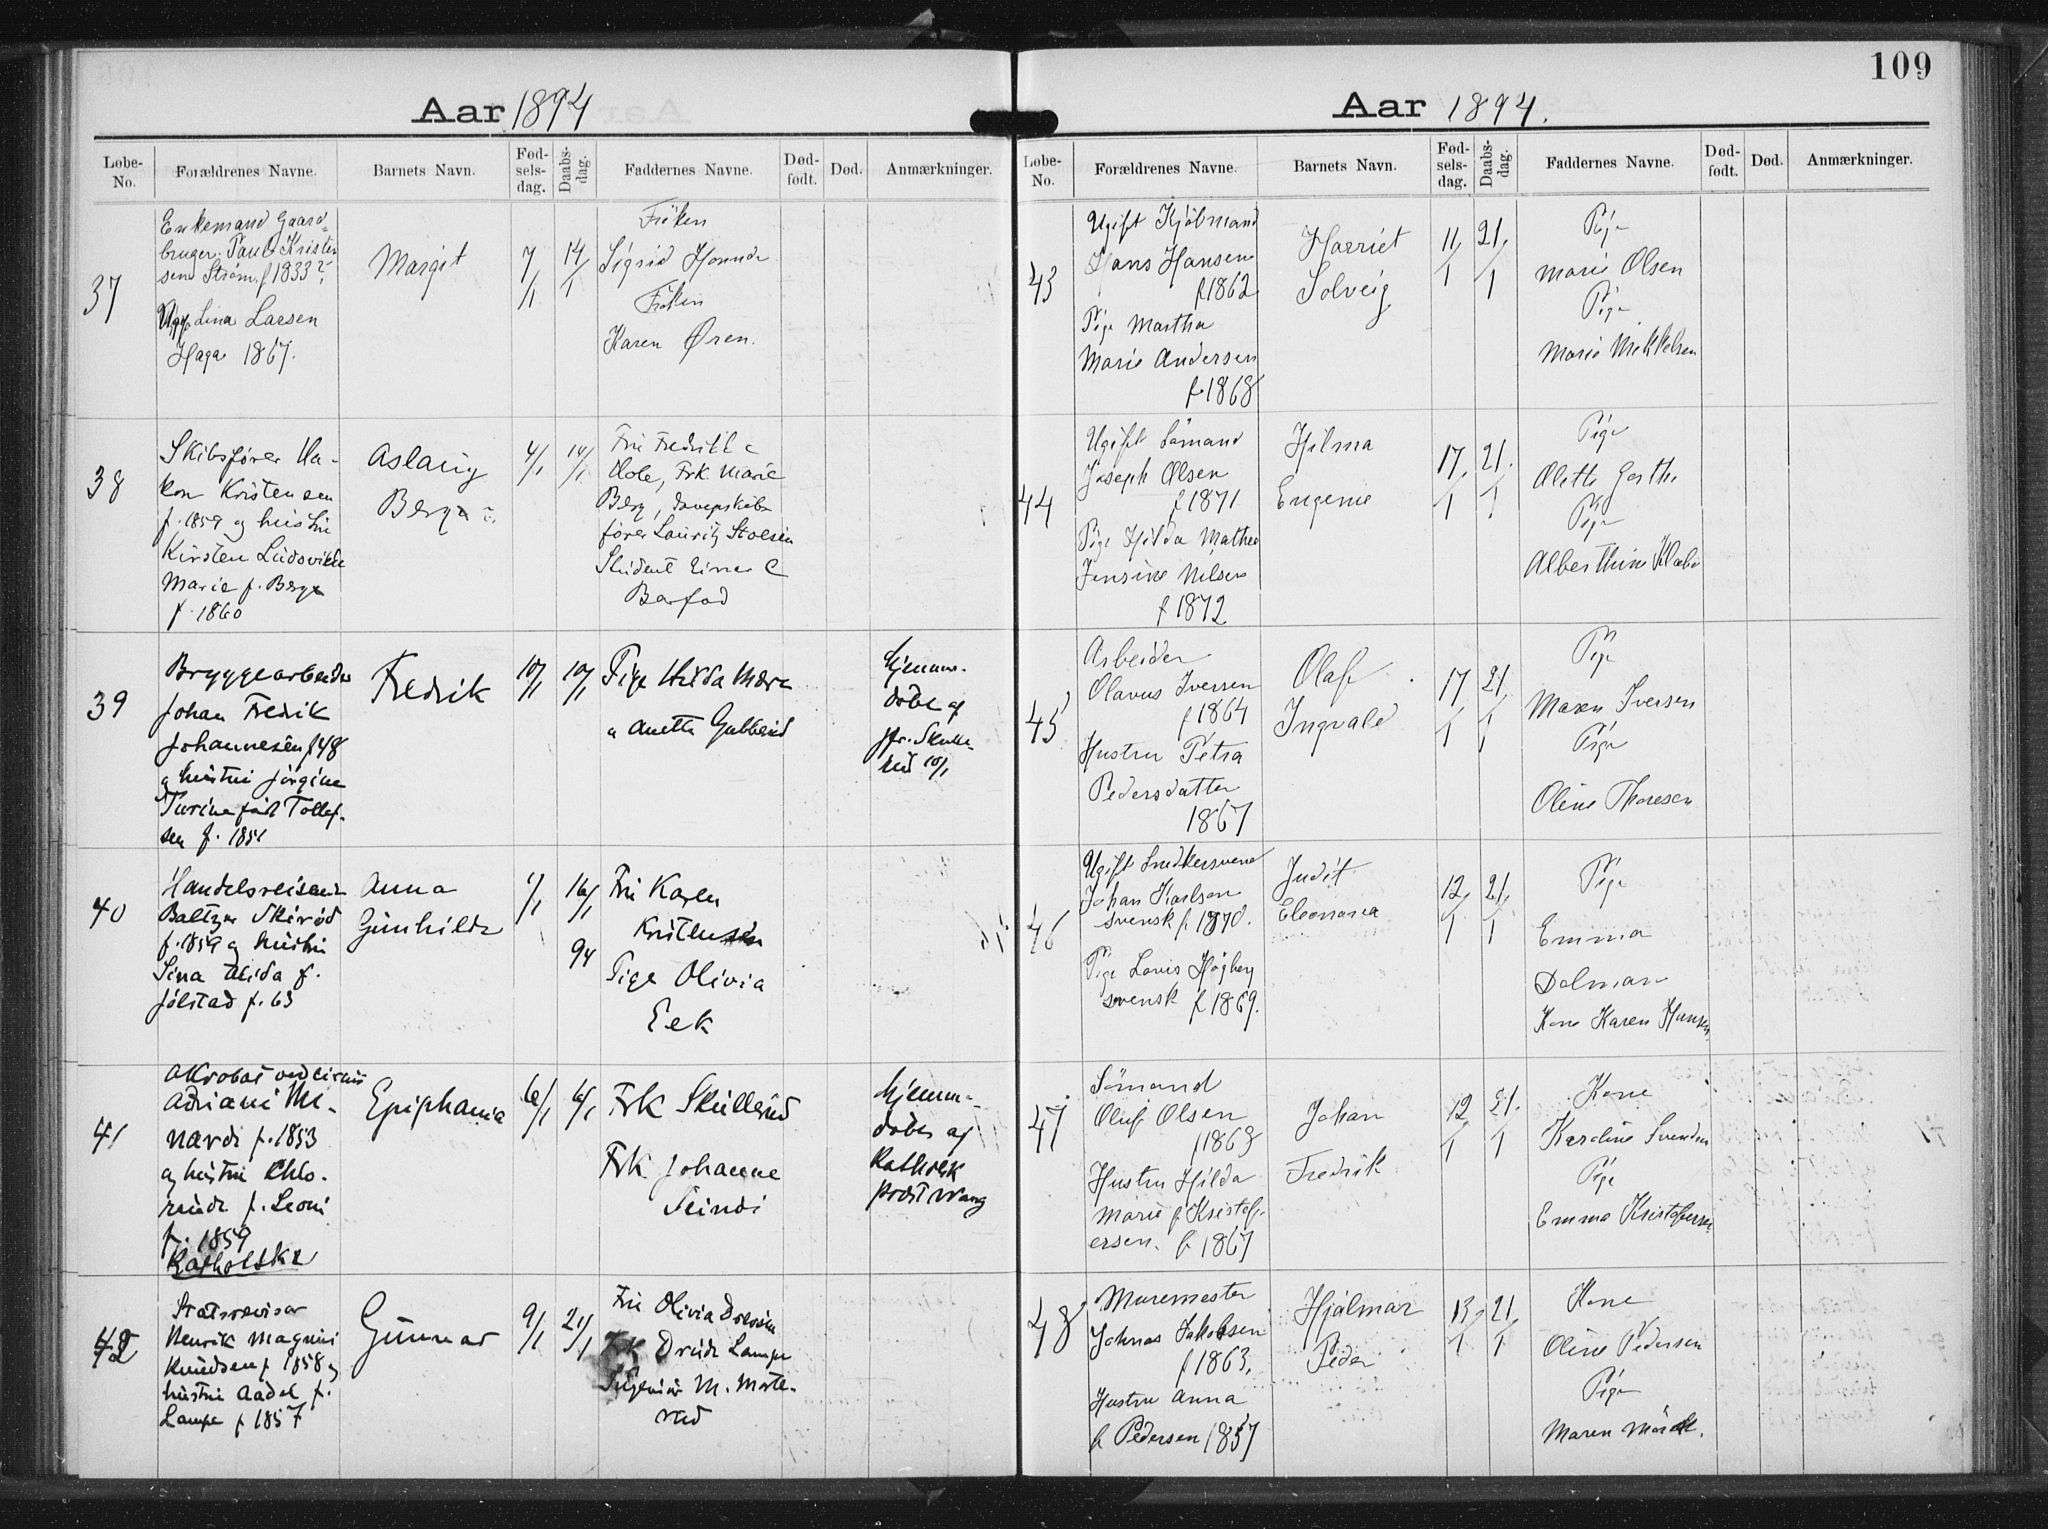 109
Aar 1894
Løbe-No.
Forældrenes Navne.
Barnets Navn.
Fød-selsdag.
Daabs-dag.
Faddernes Navne.
Død-født.
Død.
Anmærkninger.
37
Enkemand Gaard-
bruger Paul Kristen
sen Strøm f 1833?
Lina Larsen
Haga 1867.
Margit
7/1
14/1
Frøken
Sigrid
Frøken
Karen Øren.
38
Skibsfører Ha-
kon Kristensen
f. 1859 og
Kirsten Ludovikke
Marie f. Berg
f. 1860
Aslaug
4/1
14/1
Hole, Frk. Marie
Berg,
fører Lauritz
Student Einar C
Barfod
39
Bryggearbeider
Johan Fredrik
Johannesen f 48
og hustru Jørgine
Turine født Tollef-
sen f. 1851
Fredrik
10/1
10/1
Pige Hilda
" Anette
Hjemme-
døbt af
10/1
40
Handelsreisende
f. 1859 og hustru
f. 63
Anna
Gunhilde
1/1
16/1
94
Fru Karen
Kristensen
Pige Olivia
Eek
41
Akrobat ved cirkus
Adriani Me-
nardi f. 1853
og hustru Chlo-
rinde f. Leoni
f. 1859
Katholske
Epiphania
6/1
6/1
Frk Skullerud
Frk Johanne
Hjemme-
døbt af
Katholsk
Præst Wang
42
Statsrevisor
Henrik Magnus
Knudsen f 1858 og
hustru Aadel f.
Lampe f 1857
Gunnar
9/1
21/1
Fru Olivia
Frk Drude Lampe
Ingeniør M. Morte-
rud
Aar 1894.
Løbe-No.
Forældrenes Navne.
Barnets Navn.
Fød-selsdag.
Daabs-dag.
Faddernes Navne.
Død-født.
Død.
Anmærkninger.
43
Ugift Kjøbmand
Hans Hansen
f 1862
Pige Martha
Marie Andersen
f. 1868
Harriet
Solveig
11/1
21/1
Pige
Marie Olsen
Pige
Marie Mikkelsen
44
Ugift Sømand
Joseph Olsen
f 1871
Pige Hilda Mathea
Jensine Nilsen
f 1872
Hilma
Eugenie
17/1
21/1
Pige
Pige
45
Arbeider
Olavus Iversen
f 1864
Hustru Petra
Pedersdatter
1867
Olaf
Ingvald
17/1
21/1
Pige
Maren Iversen
Pige
Oline Thoresen
46
Ugift Snedkersvend
Johan Karlson
svensk f. 1870.
Pige Lovis Høgberg
svensk f 1869.
Judit
Eleonora
12/1
21/1
Pige
Emma
Dolman
Kone Karen Hansen
47
Sømand
Oluf Olsen
f 1868
Hustru Hilda
Marie f Kristof-
ersen. f 1867
Johan
Fredrik
12/1
21/1
Kone
Karoline Svendsen
Pige
Emma Kristofersen
48
Muremester
Johnas Jakobsen
f 1863.
Hustru Anna
f Pedersen 1857
Hjalmar
Peder
13/1
21/1
Kone
Oline Pedersen
Pige
Maren Mørck.